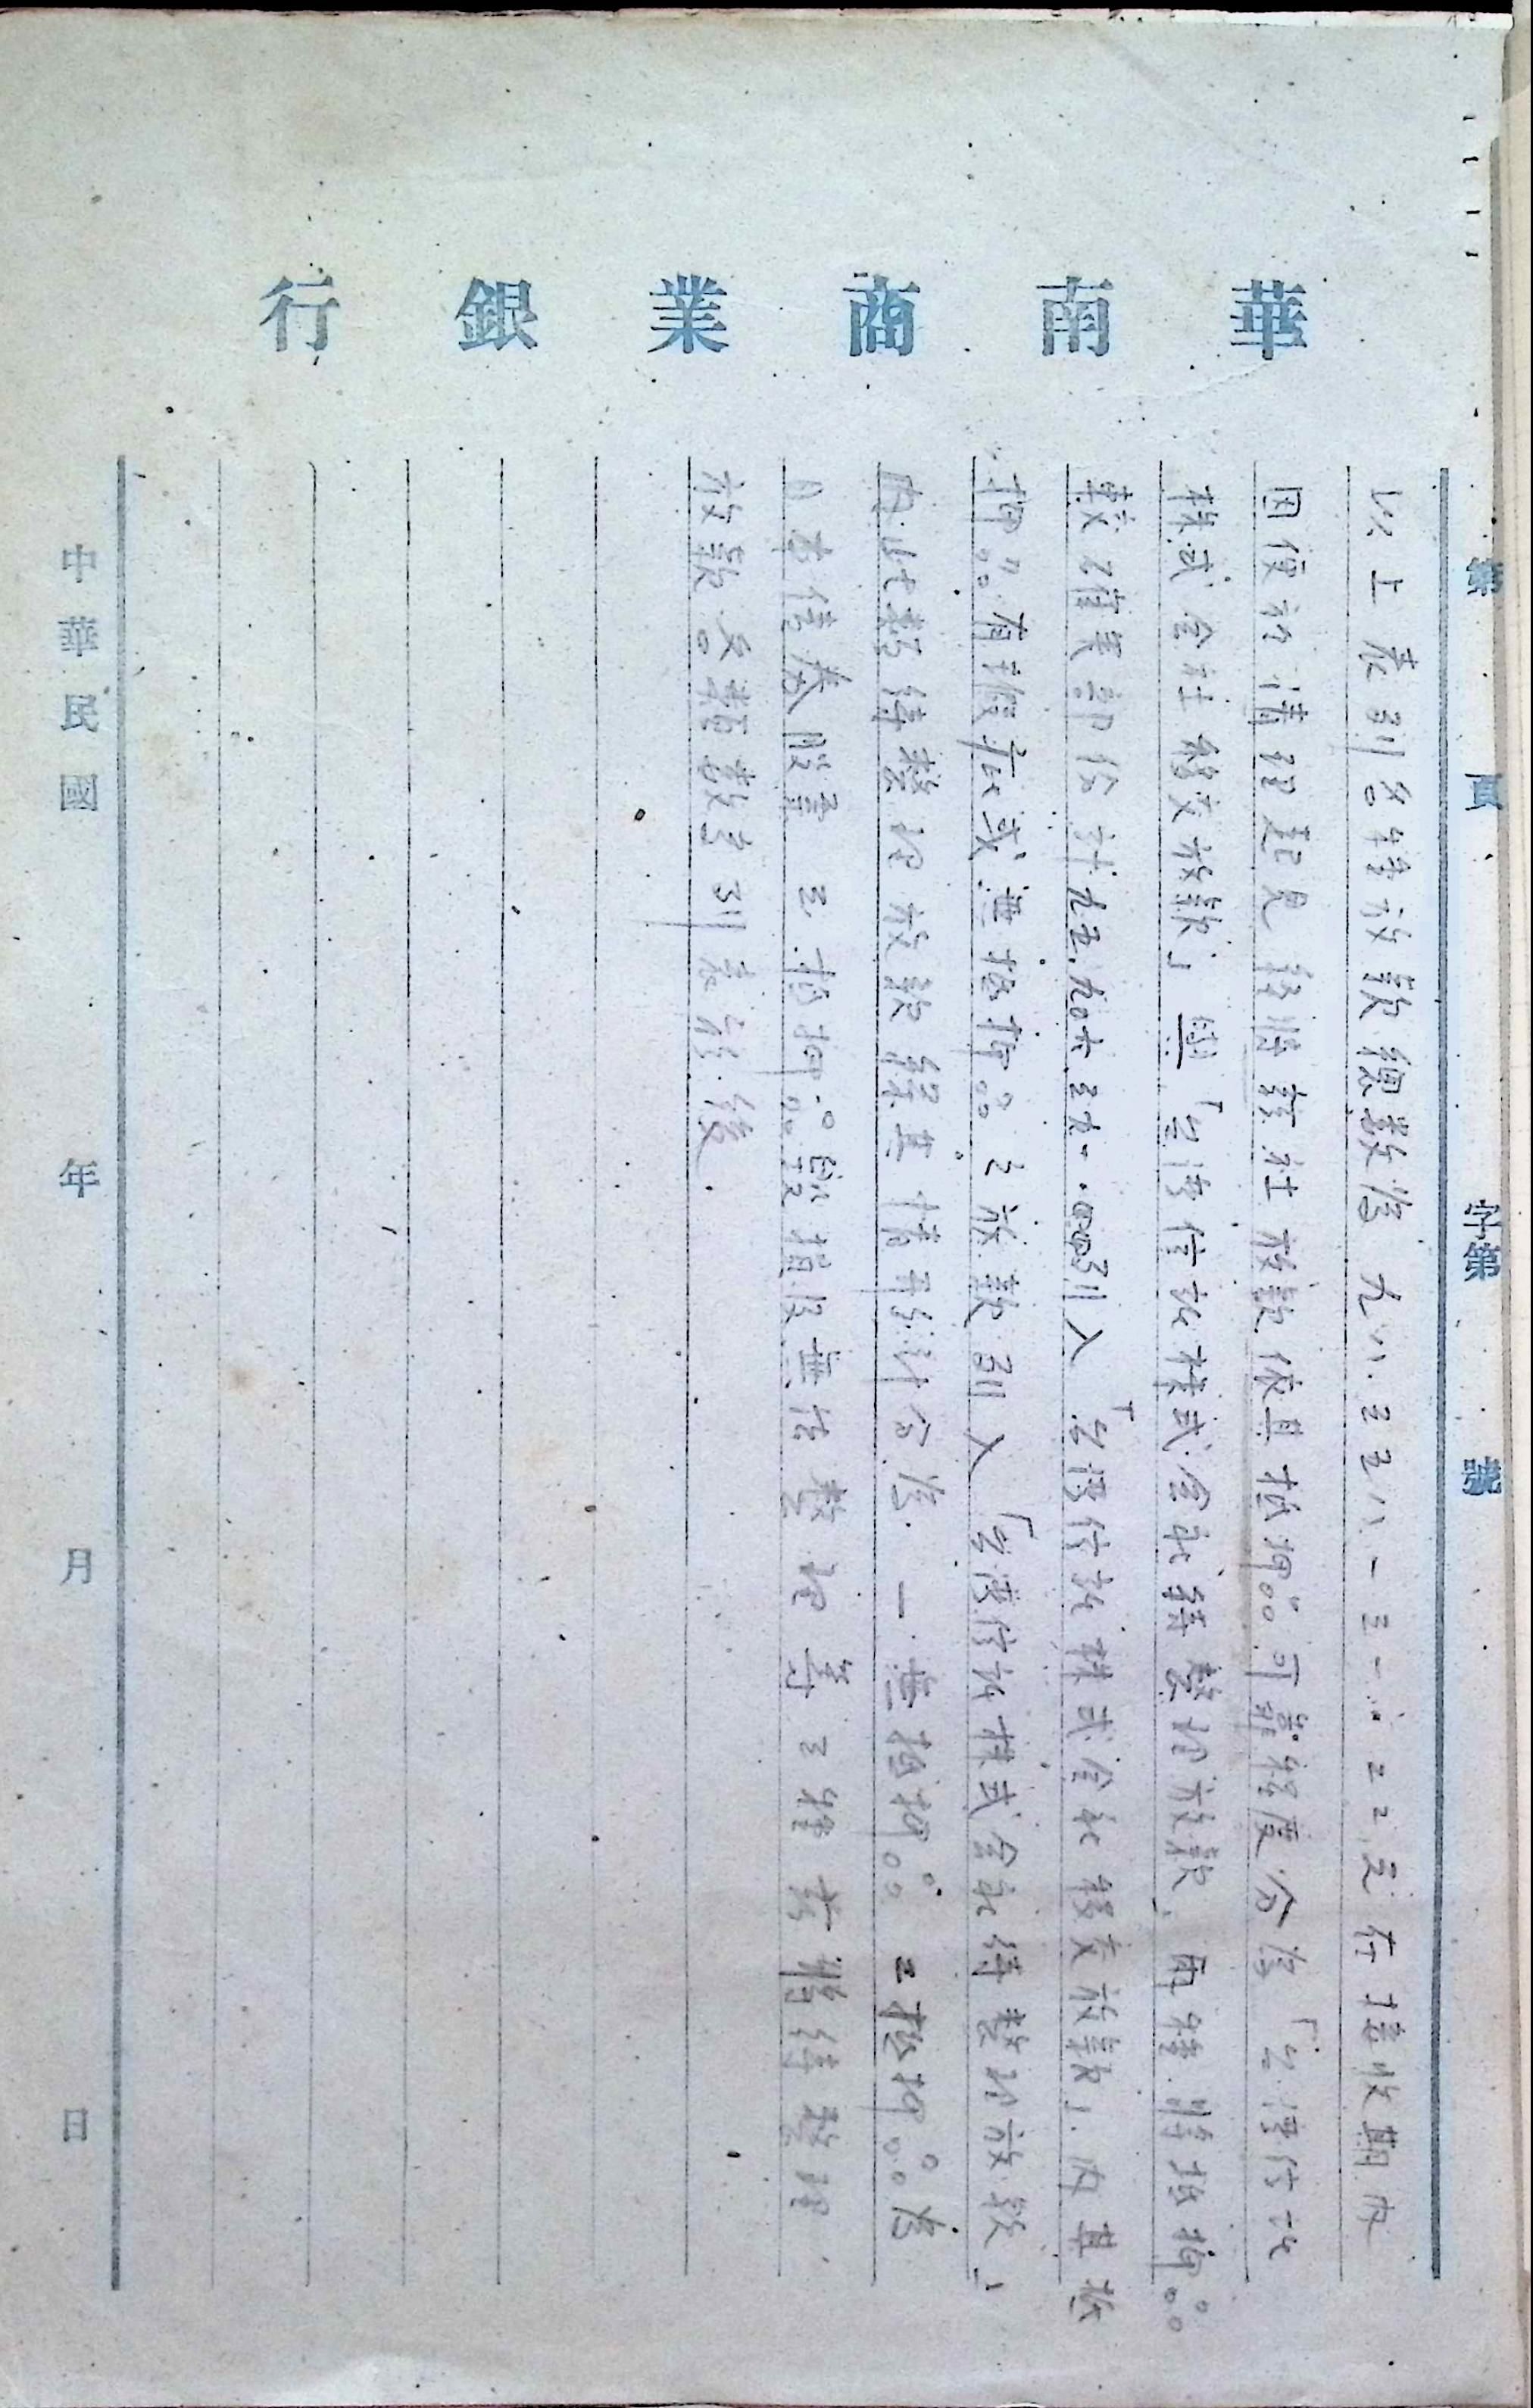 第 頁 字第 號
華南商業銀行
以上表列各種放款總數為九八.三五八一三一.〇二二元在接收期內
因便於清理起見經將該社放款依其抵押品可靠程度分為「台灣信託
株式会社移交放款」與「台灣信託株式会社待整理放款」兩種將抵押品
較確實部份計九五.九〇六三六一.〇四四列入「台灣信託株式会社移交放款」內其抵
押品有瑕疵或無抵押品之放款列入「台灣信託株式会社待整理放款」
內此類待整理放款經其情形計分為一.無抵押品 二抵押品為
日本債券股票 三.抵押品毀損及無法整理等三種茲將待整理
放款各類數字列表於後
中華民國 年 月 日